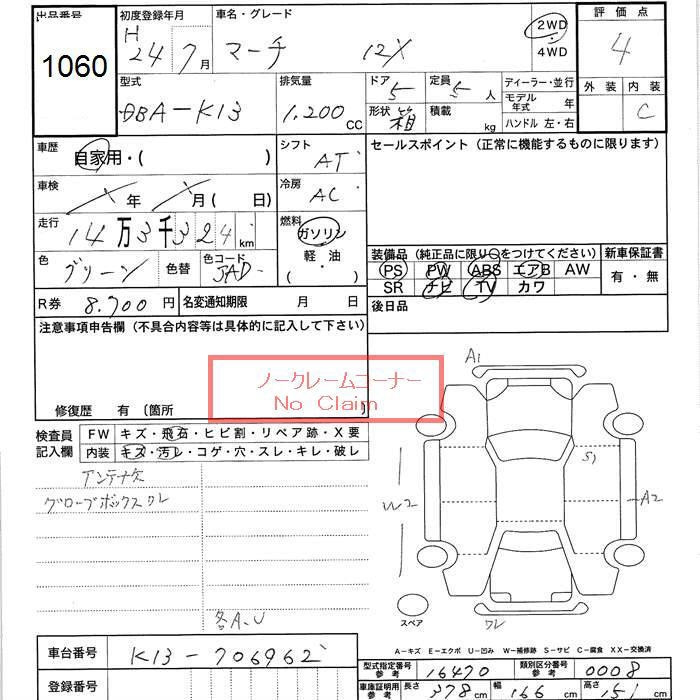 出品番号 初度登録年月 車名・グレード 評価点
1060 H 24 7月 マーチ 12X 2WD・4WD 4
型式 排気量 ドア 定員 ディーラー・並行 外装 内装
DBA-K13 1,200cc 5 5人 モデル年式 年 C
形状 箱 積載 kg ハンドル 左・右
車歴 自家用・( ) シフト AT セールスポイント（正常に機能するものに限ります）
車検 年 月( 日) 冷房 AC
走行 14万3千324km 燃料 ガソリン・軽油( )
色 グリーン 色替 色コード JAD
装備品（純正品に限り○をつけてください） 新車保証書
PS PW ABS エアB AW 有・無
SR ナビ TV カワ
R券 8,700円 名変通知期限 月 日 後日品
注意事項申告欄（不具合内容等は具体的に記入して下さい）
ノークレームコーナー
No Claim
修復歴 有（箇所 ）
検査員記入欄 FW キズ・飛石・ヒビ割・リペア跡・X要
内装 キズ・汚レ・コゲ・穴・スレ・キレ・破レ
アンテナ欠
グローブボックスワレ
各A.U
A1
S1
W2
A2
スペア ワレ
A-キズ E-エクボ U-凹み W-補修跡 S-サビ C-腐食 XX-交換済
車台番号 K13-706962
登録番号
型式指定番号 参考 16470 類別区分番号 参考 0008
車庫証明用 参考 長さ 378cm 幅 166cm 高さ 151cm